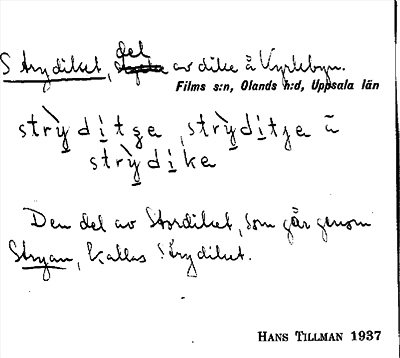 Strydiket, del av dike å Kyrkbyn.
Films s:n, Olands h:d, Uppsala län
strỳdi̱tʒe, strỳdi̱tʒe ä
strỳdi̱ke
Den del av Stordiket, som går genom
Stryan, kallas Strydiket.
HANS TILLMAN 1937